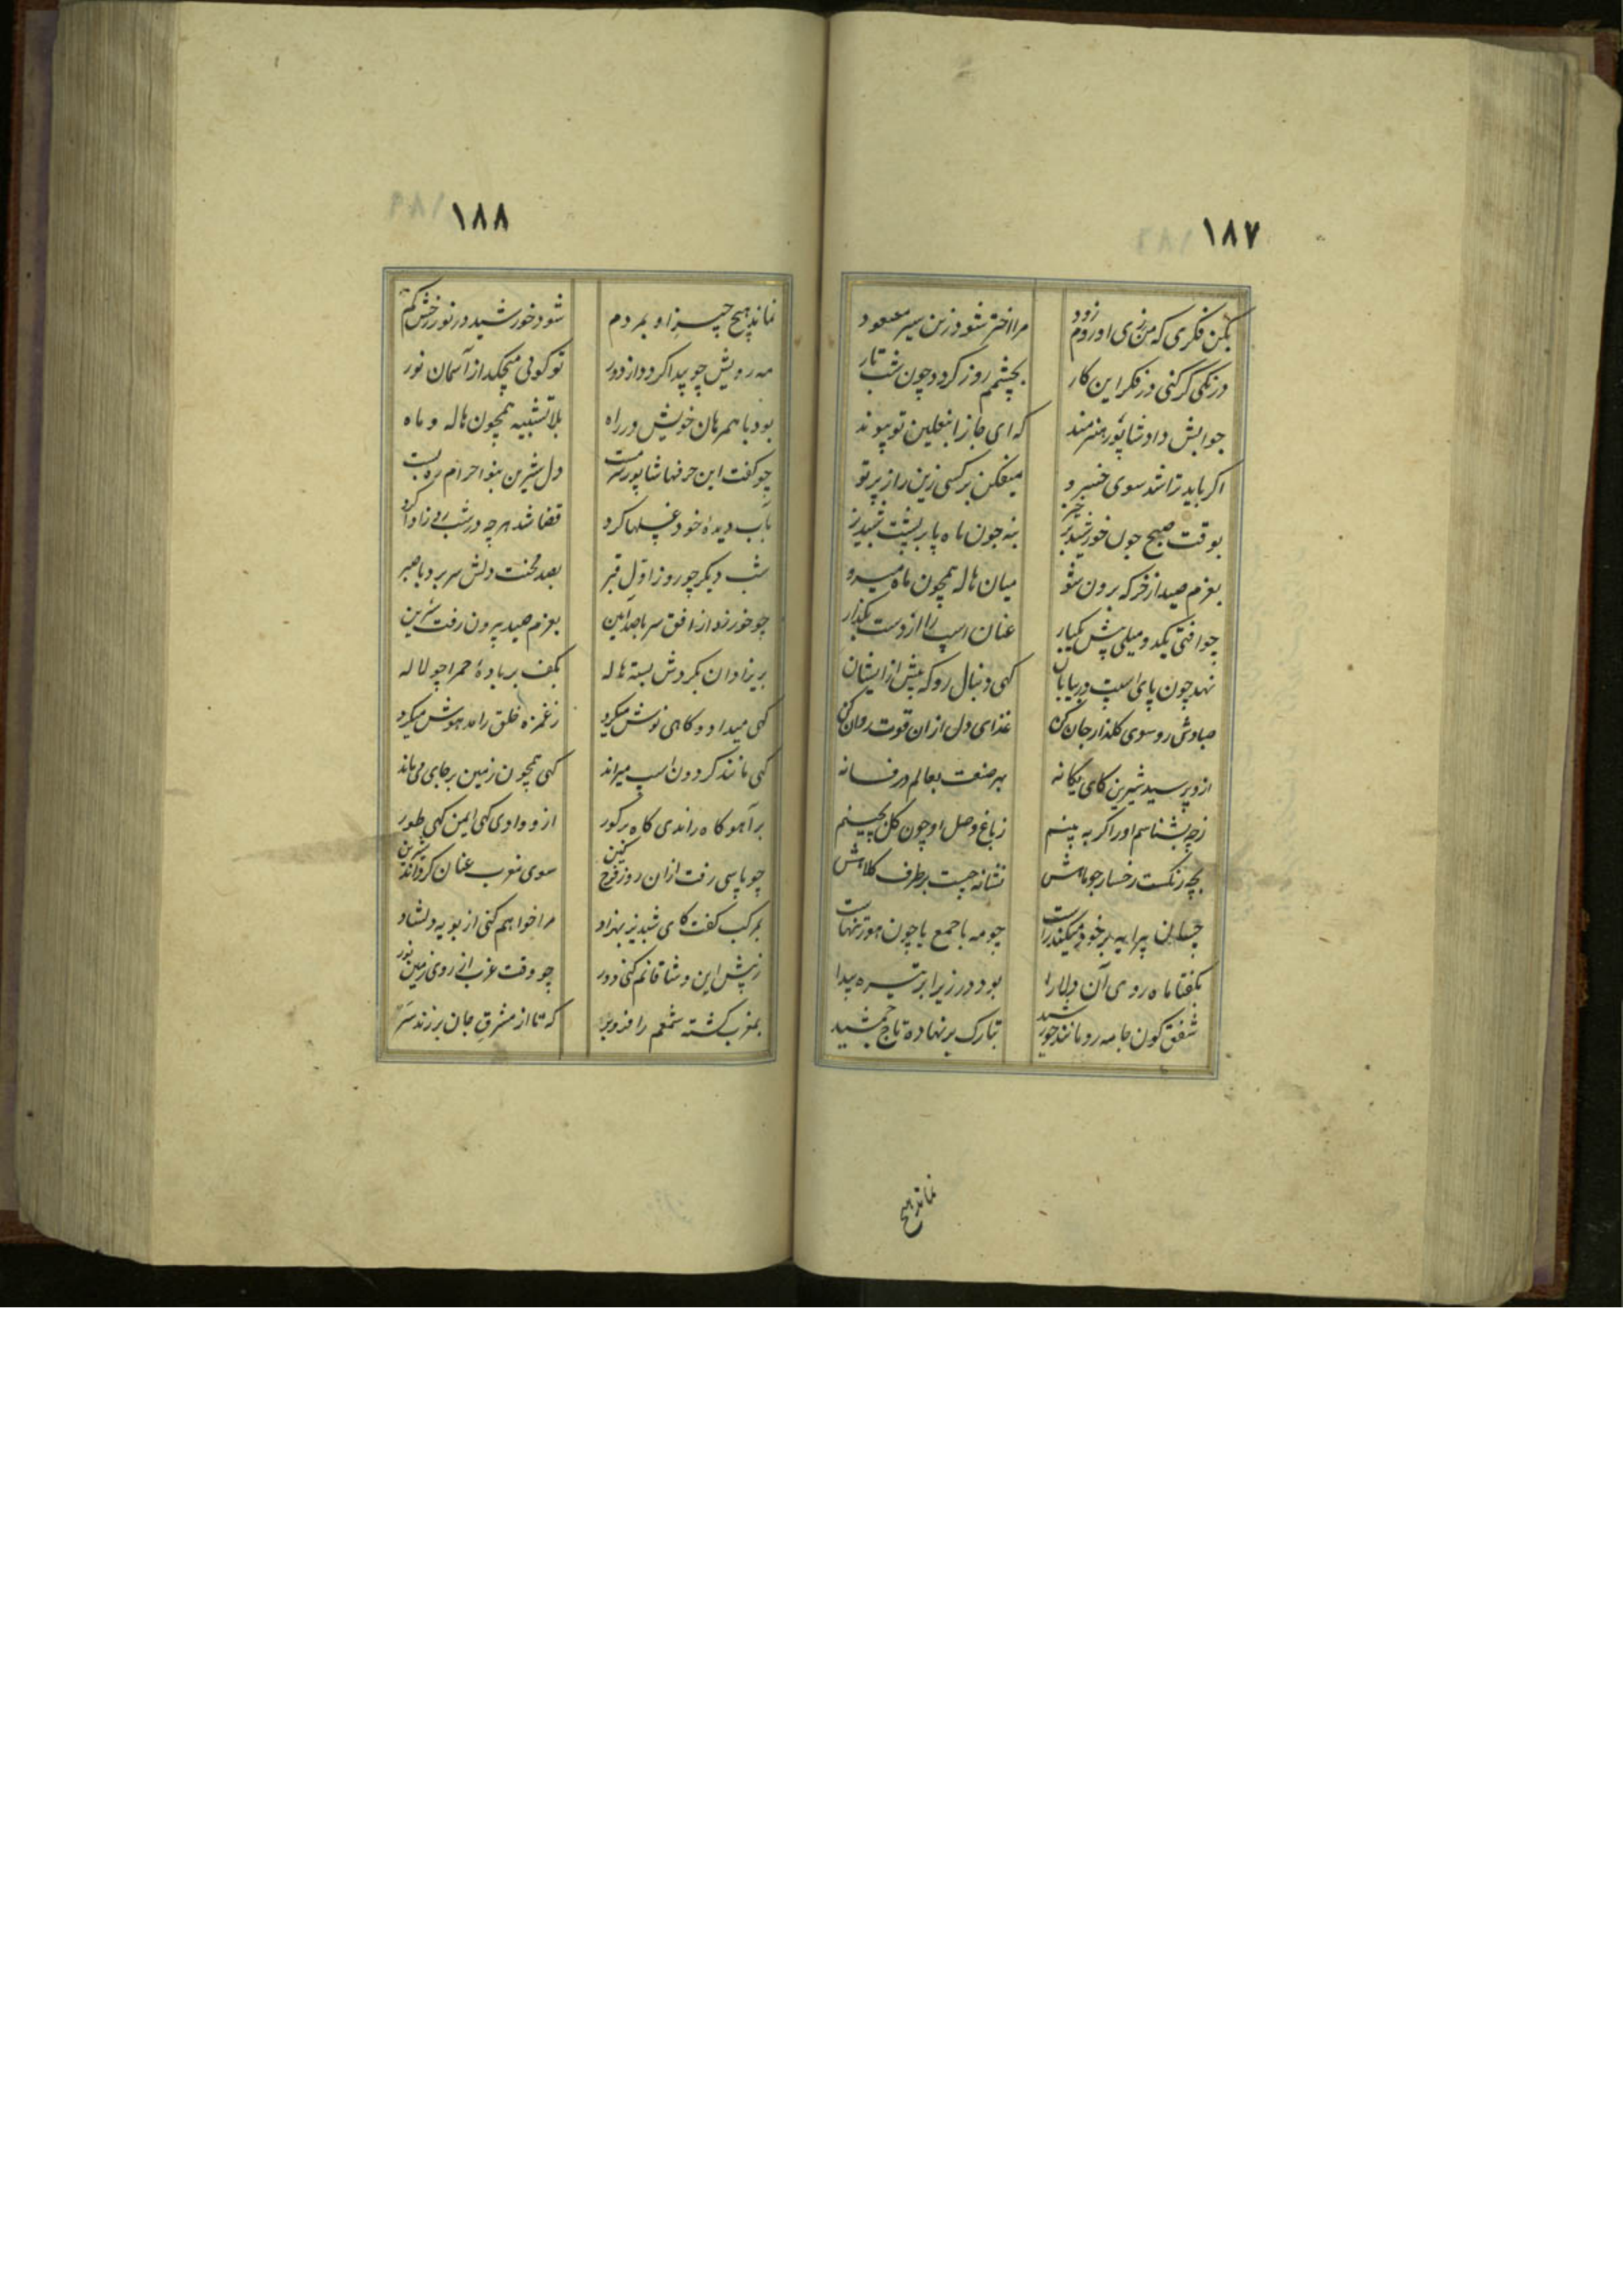 ۱۸۷
بکن فکری که من زی او روم زود
مرا اختر شود زین سیر مسعود
درنگی گر کنی در فکر این کار
بچشمم روز کردد چون شب تار
جوابش داد شاپور هنرمند
که ای جانرا بنعلین تو پیوند
اکر باید ترا شد سوی خسرو
میفکن بر کسی زین راز پرتو
بوقت صبح چون خورشید بر خیز
بنه چون ماه پا بر پشت شبدیز
بعزم صید از خرکه برون شو
میان هاله همچون ماه میرو
چو افتی یکدو میلی پیش یکبار
عنان اسپ را از دست بکذار
نهد چون پای اسپت در بیابان
کهی دنبال رو که پیش ازایشان
صباوش رو سوی کلذار جان کن
غذای دل ازان قوت روان کن
ازو پرسید شیرین کای یکانه
بهر صنعت بعالم در فسانه
زچه بشناسم اورا کر به بینم
زباغ وصل او چون کل بچینم
بچه رنکست رخسار چو ماهش
نشانه چیست بر طرف کلاهش
چسان پیرایه بر خود میکند راست
چو مه با جمع یا چون هور تنهاست
بکفتا ماه روی آن دلارا
بود در زیر ابر تیره پیدا
شفق کون جامه رو مانند خورشید
تبارک بر نهاده تاج جمشید
نماند هیچ
۱۸۸
نماند هیچ چیز او بمردم
شود خورشید در نور رخش کم
مه رویش چو پیدا کردد از دور
تو کوئی میچکد از آسمان نور
بود با همرهان خویش در راه
بلا تشبیه همچون هاله و ماه
چو کفت این حرفها شاپور سرمست
دل شیرین بنو احرام ره بست
بآب دیدهٔ خود غسلها کرد
قضا شد هرچه در شب روز ادا کرد
شب دیکر چو روز اول قبر
بصد محنت دلش سر برد با صبر
چو خور زد از افق سر با صد آیین
بعزم صید بیرون رفت شیرین
پریزادان بکردش بسته هاله
بکف بر بادهٔ حمرا چو لاله
کهی میداد و کاهی نوش میکرد
زغمزه خلق را مدهوش میکرد
کهی مانند کردون اسپ میراند
کهی همچون زمین بر جای می ماند
بر آهو کاه راندی کاه بر کور
ازو وادی کهی ایمن کهی طور
چو پاسی رفت ازان روز فرح
سوی مغرب عنان کرداند شیرین
بمرکب کفت کای شبدیز بهزاد
مرا خواهم کنی از پویه دلشاد
زپیش این وشاقانم کنی دور
چو وقت غرب از روی زمین نور
بمغرب کشته شمعم را فروبر
که تا از مشرق جان بر زند سر